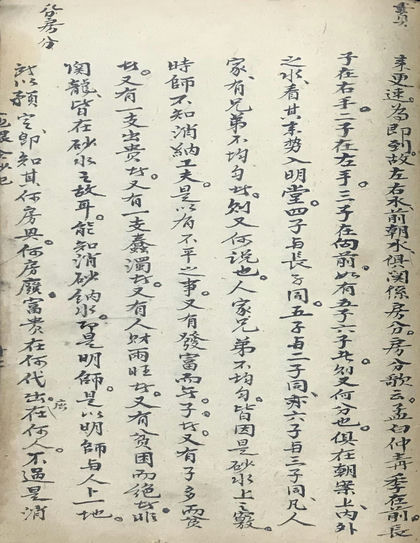 分房分
来更速為即到故左右水前朝水俱関係房分。房分歌云。孟白仲青季在前。長
子在右手二子在左手三子在向前。如有五子六子此則又何分也。俱在朝案上内外
之水。看其来势入明堂。四子与長子同。五子与二子同。亦六子与三子同。凡人
家有兄弟不均匀此則又何説也。人家兄弟不均匀。皆因是砂水上之
時師不知消納工夫。是以有不平之事。又有發富而子此又有子多而貧
此又有一支出貴此又有一支蠢濁此又有人財両旺此又有貧困而絶此。
龍皆在砂水之故耳。能知消砂納水。即是明師。是以明師与人卜一地
即知其何房興何房富貴在何代。出在何人。不過是消